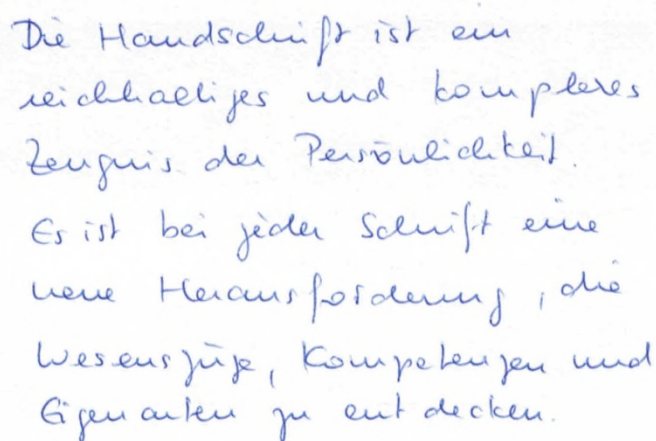 Die Handschrift ist ein
reichhaltiges und komplexes
Zeugnis der Persönlichkeit.
Es ist bei jeder Schrift eine
neue Herausforderung, die
Wesenszüge, Kompetenzen und
Eigenarten zu entdecken.